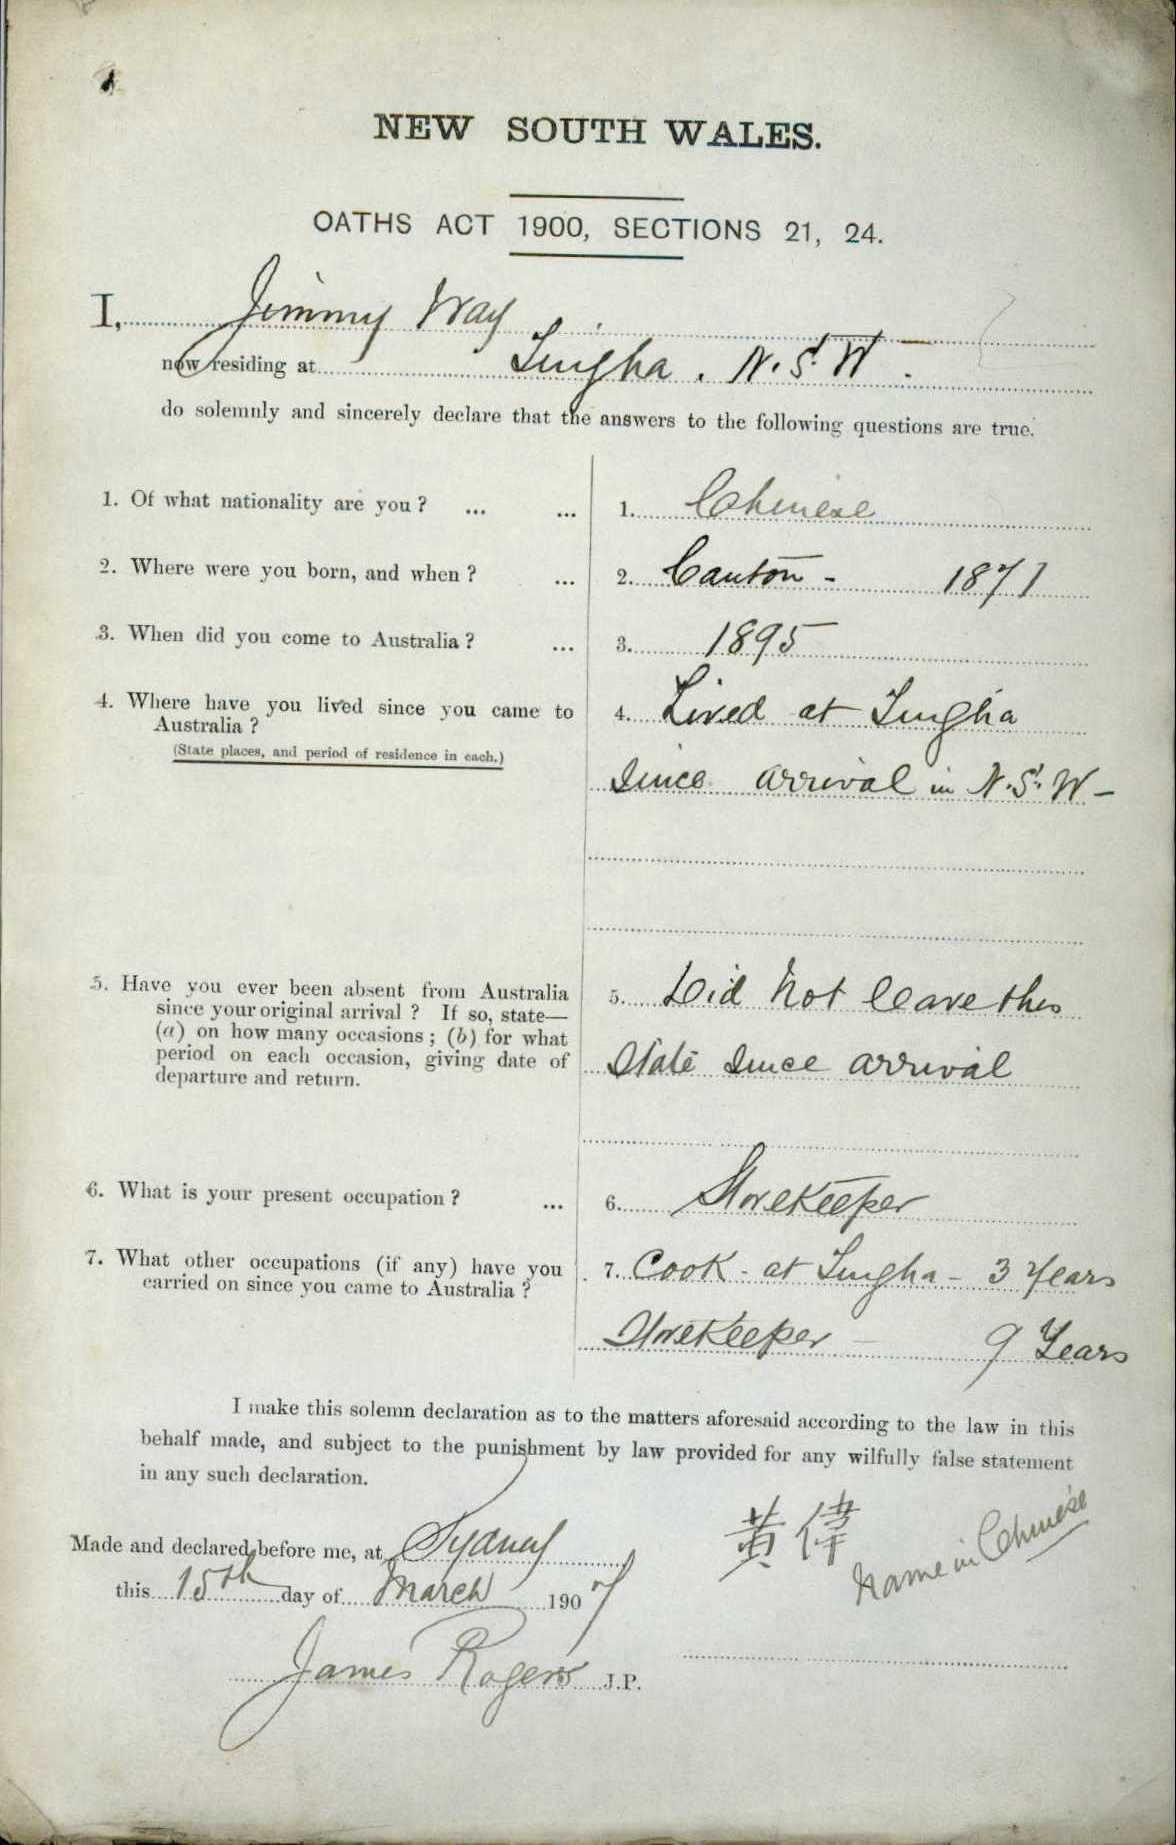 NEW SOUTH WALES.
OATHS ACT 1900, SECTIONS 21, 24.
I, Jimmy Way
now residing at Tingha. N.S.W.
do solemnly and sincerely declare that the answers to the following questions are true.
1. Of what nationality are you? ... ... 1. Chinese
2. Where were you born, and when? ... 2. Canton - 1871
3. When did you come to Australia? ... 3. 1895
4. Where have you lived since you came to 4. Lived at Tingha
Australia?
(State places, and period of residence in each.)
since arrival in N.S.W -
5. Have you ever been absent from Australia 5. Did not leave this
since your original arrival? If so, state—
(a) on how many occasions; (b) for what
period on each occasion, giving date of State since arrival
departure and return.
6. What is your present occupation? ... 6. Storekeeper
7. What other occupations (if any) have you 7. Cook - at Tingha - 3 Years
carried on since you came to Australia?
Storekeeper - 9 Years
I make this solemn declaration as to the matters aforesaid according to the law in this
behalf made, and subject to the punishment by law provided for any wilfully false statement
in any such declaration.
黃偉
name in Chinese
Made and declared before me, at Sydney
this 15th day of March 1907
James Rogers J.P.